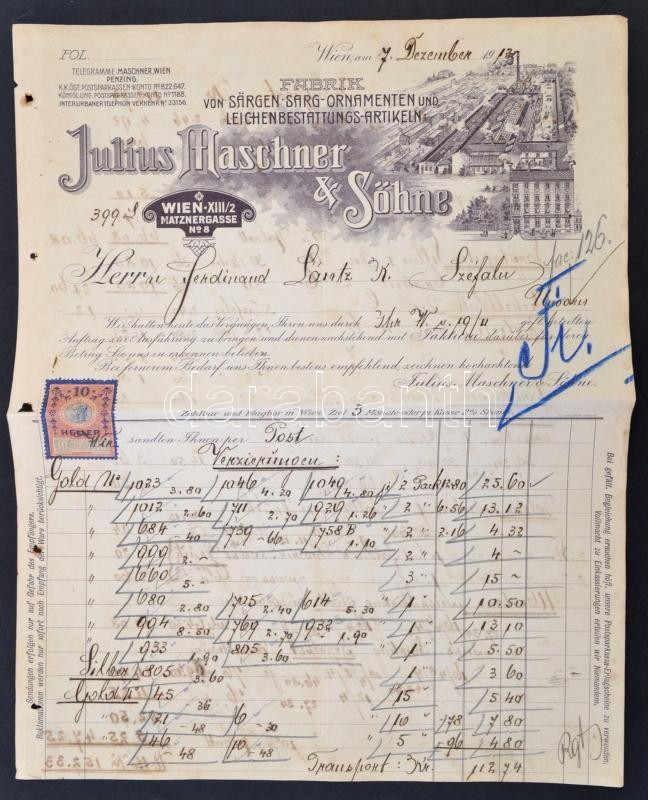 FOL.
Wien, am 7 Dezember 1913
TELEGRAMME: MASCHNER, WIEN
PENZING.
K.K. ÖST. POSTSPARKASSEN-KONTO No 822.647.
KÖNIGL. UNG. POSTSPARKASSEN-KONTO No 1188.
INTERURBANER TELEPHON VERKEHR No 33156.
FABRIK
VON SÄRGEN-SARG-ORNAMENTEN UND
LEICHENBESTATTUNGS-ARTIKELN
Julius Maschner
& Söhne
WIEN-XIII/2
MATZNERGASSE
No 8
399
126.
Herrn Ferdinand Lantz K. Szefalu
Wir hatten heute das Vergnügen, Ihnen uns durch Ihr W. v. 19/11 geft. erteilten
Auftrag zur Ausführung zu bringen und dienen nachstehend mit Faktura darüber, für deren
Betrag Sie uns zu erkennen belieben.
Bei fernerem Bedarf uns Ihnen bestens empfehlend, zeichnen hochachtend
Julius Maschner & Söhne.
Zahlbar und klagbar in Wien. Ziel 3 Monate oder pr. Kassa 2% Skonto
10
HELLER
sandten Ihnen per Post
Verzierungen:
Gold No 1023 3.80 1046 4.20 1049 2 Park 12.80 25.60
" 1012 2.60 711 2.70 1029 1.26 " 2 " 6.56 13.12
" 684 -40 739 -66 758 B 1.10 " 2 " 2.16 4.32
" 999 2.- 2 " 4 -
" 660 5.- 3 " 15 -
" 680 2.80 705 2.40 614 5.30 " 1 " 10.50
" 994 8.50 769 2.70 932 1.90 " 1 " 13.10
" 933 1.90 805 3.60 " 1 " 5.50
Silber 805 3.60 " 1 " 3.60
Gold No 45 -36 " 15 5.40
" 121 -48 6 -30 " 10 " -78 7.80
" 46 -48 10 -48 " 5 " -96 4.80
Transport: Kr. 112.74
Sendungen erfolgen nur auf Gefahr des Empfängers.
Reklamationen werden nur sofort nach Empfang der Ware berücksichtigt.
Bei gefäll. Begleichung ersuchen höfl. unsere Postsparkassa-Erlagscheine zu verwenden.
Vollmacht zu Einkassierungen erteilen wir Niemandem.
darabanth